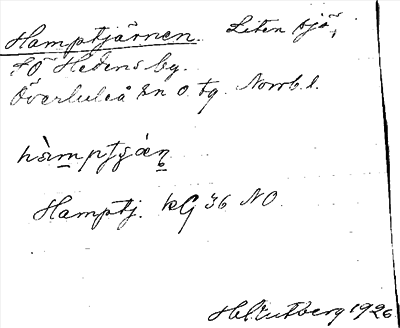 Hamptjärnen. Liten sjö,
SÖ Hedens by.
Överluleå sn o. tg. Norrb. l.
hàmptjä̀n
Hamptj. kG 36 NO.
H. Utterberg 1926